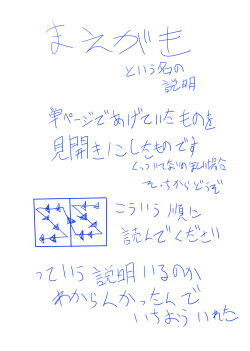 まえがき
という名の
説明
単ページであげていたものを
見開きにしたものです
くっついてないの
場合
そっちからどうぞ
こういう順に
読んでください
っていう説明いるのか
わからんかったんで
いちおういれた